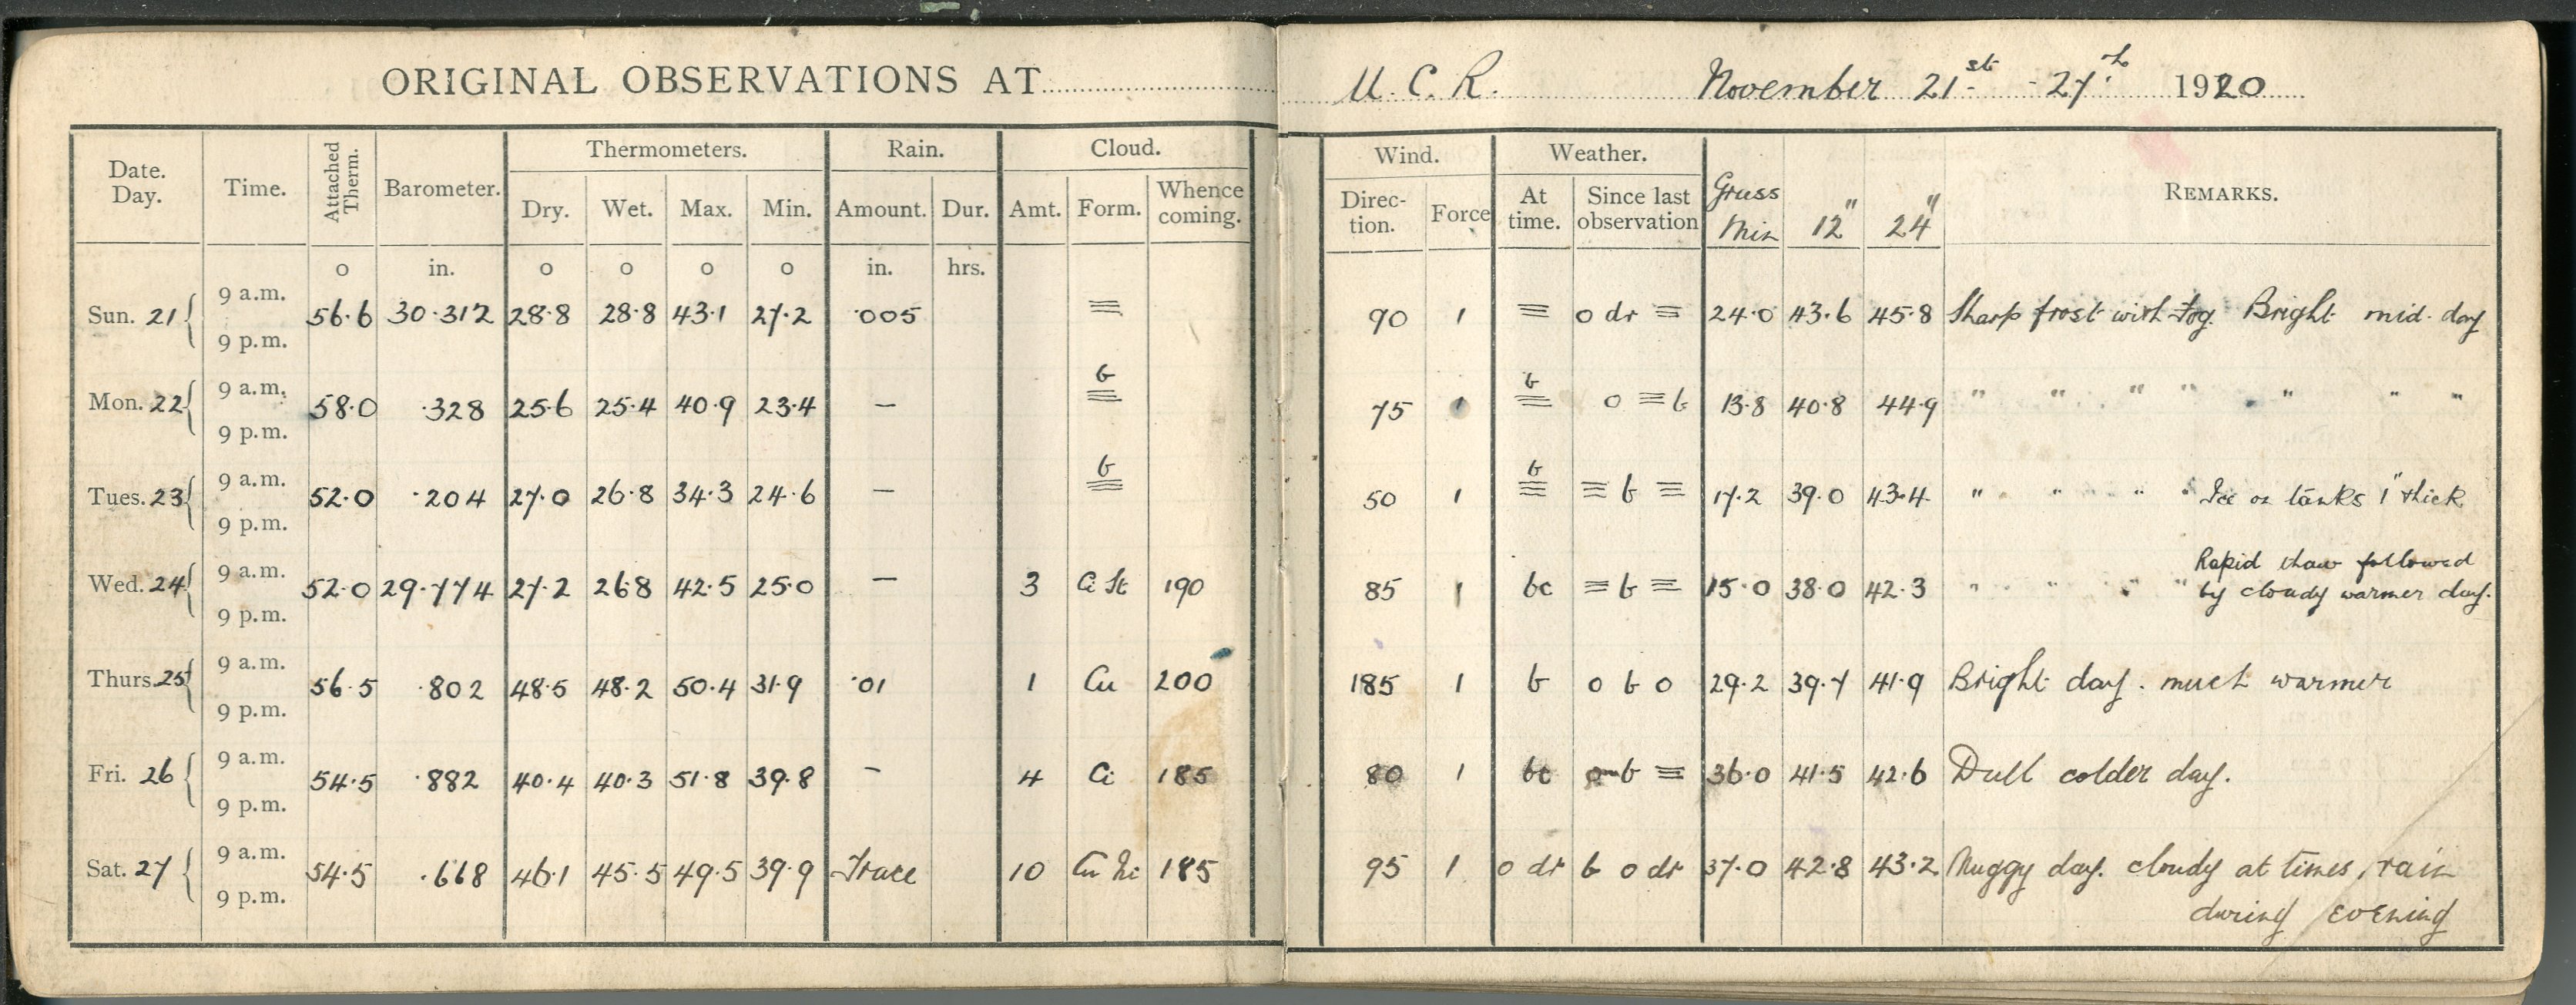 ORIGINAL OBSERVATIONS AT U. C. R. November 21st - 27th 1920
Date. Day. Time. Attached Therm. Barometer. Thermometers. Dry. Wet. Max. Min. Rain. Amount. Dur. Cloud. Amt. Form. Whence coming. Wind. Direction. Force Weather. At time. Since last observation Grass Min 12" 24" REMARKS.
o in. o o o o in. hrs.
Sun. 21 9 a.m. 56.6 30.312 28.8 28.8 43.1 27.2 .005 ≡ 90 1 ≡ o dr ≡ 24.0 43.6 45.8 Sharp frost with fog. Bright mid-day
9 p.m.
Mon. 22 9 a.m. 58.0 .328 25.6 25.4 40.9 23.4 — b ≡ 75 1 b ≡ o ≡ b 13.8 40.8 44.9 " " " " " " "
9 p.m.
Tues. 23 9 a.m. 52.0 .204 27.0 26.8 34.3 24.6 — b ≡ 50 1 b ≡ ≡ b ≡ 17.2 39.0 43.4 " " " " Ice on tanks 1" thick
9 p.m.
Wed. 24 9 a.m. 52.0 29.774 27.2 26.8 42.5 25.0 — 3 Ci St 190 85 1 bc ≡ b ≡ 15.0 38.0 42.3 " " " " Rapid thaw followed
9 p.m. by cloudy warmer day.
Thurs. 25 9 a.m. 56.5 .802 48.5 48.2 50.4 31.9 .01 1 Cu 200 185 1 b o b o 29.2 39.7 41.9 Bright day. much warmer
9 p.m.
Fri. 26 9 a.m. 54.5 .882 40.4 40.3 51.8 39.8 — 4 Ci 185 80 1 bc o b ≡ 36.0 41.5 42.6 Dull colder day.
9 p.m.
Sat. 27 9 a.m. 54.5 .668 46.1 45.5 49.5 39.9 Trace 10 Cu Ni 185 95 1 o dr b o dr 37.0 42.8 43.2 Muggy day. cloudy at times, rain
9 p.m. during evening